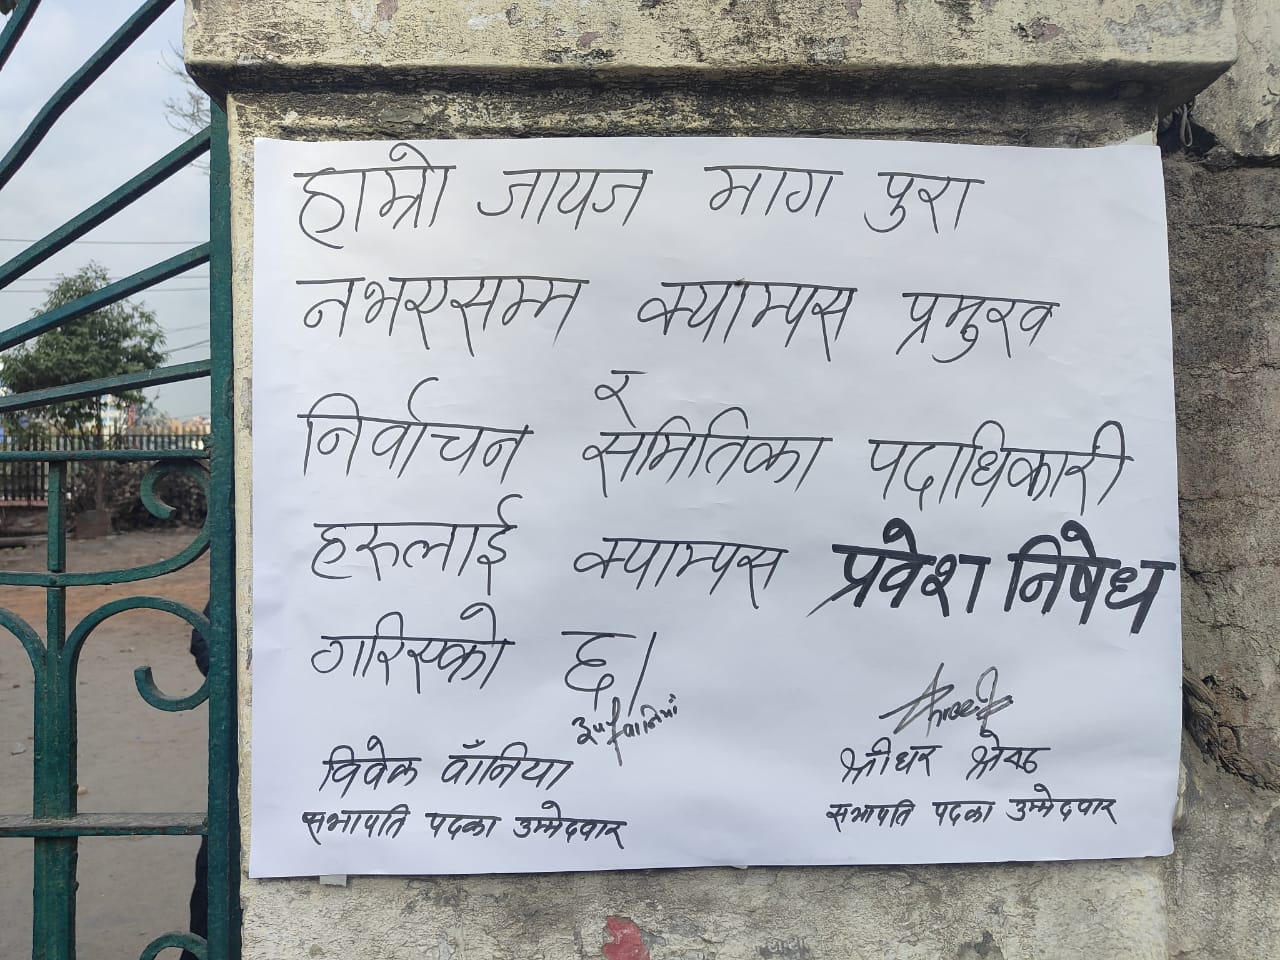 हाम्रो जायज माग पुरा
नभएसम्म क्याम्पस प्रमुख
र
निर्वाचन समितिका पदाधिकारी
हरुलाई क्याम्पस प्रवेश निषेध
गरिएको छ।
विवेक वाँनिया
सभापति पदका उम्मेदवार
श्रीधर श्रेष्ठ
सभापति पदका उम्मेदवार